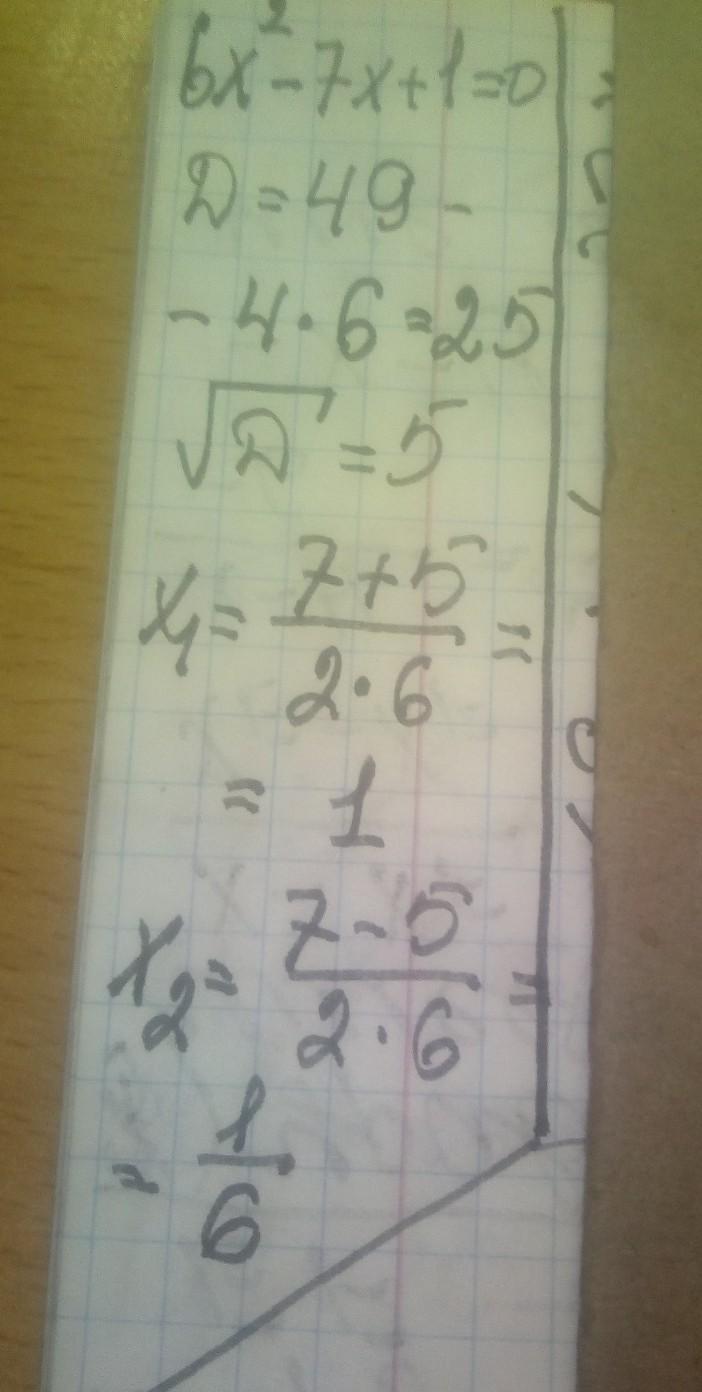 6x²-7x+1=0
D=49-
-4·6=25
√D=5
x₁=(7+5)/(2·6)=
=1
x₂=(7-5)/(2·6)=
=1/6